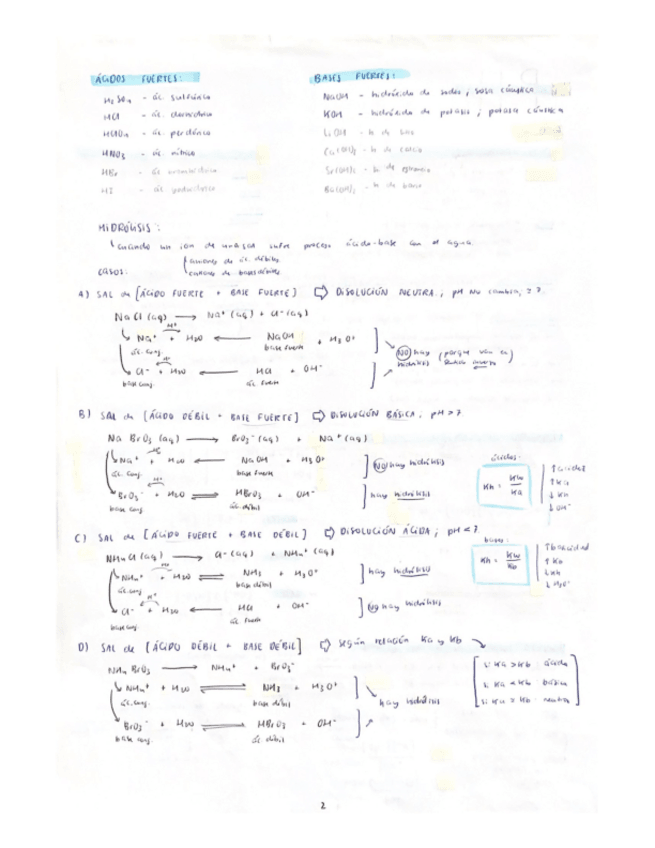 ÁCIDOS FUERTES:
H₂SO₄ - ác. sulfúrico
HCl - ác. clorhídrico
HClO₄ - ác. perclórico
HNO₃ - ác. nítrico
HBr - ác. bromhídrico
HI - ác. yodhídrico
BASES FUERTES:
NaOH - hidróxido de sodio; sosa cáustica
KOH - hidróxido de potasio; potasa cáustica
LiOH - h. de litio
Ca(OH)₂ - h. de calcio
Sr(OH)₂ - h. de estroncio
Ba(OH)₂ - h. de bario
HIDRÓLISIS:
cuando un ion de una sal sufre proceso ácido-base con el agua.
CASOS:
aniones de ác. débiles
cationes de bases débiles
A) SAL de [ÁCIDO FUERTE + BASE FUERTE] ⇨ DISOLUCIÓN NEUTRA; pH no cambia, = 7
NaCl (aq) → Na⁺ (aq) + Cl⁻ (aq)
Na⁺ + H₂O ← NaOH + H₃O⁺
ác. conj. base fuerte
Cl⁻ + H₂O ← HCl + OH⁻
base conj. ác. fuerte
NO hay hidrólisis (porque van en sentido inverso)
B) SAL de [ÁCIDO DÉBIL + BASE FUERTE] ⇨ DISOLUCIÓN BÁSICA; pH > 7
NaBrO₃ (aq) → BrO₃⁻ (aq) + Na⁺ (aq)
Na⁺ + H₂O ← NaOH + H₃O⁺ ] NO hay hidrólisis
ác. conj. base fuerte
BrO₃⁻ + H₂O ⇌ HBrO₃ + OH⁻ ] hay hidrólisis
base conj. ác. débil
ácidos:
Kh = Kw/Ka
↑ acidez
↑ Ka
↓ Kh
↓ OH⁻
C) SAL de [ÁCIDO FUERTE + BASE DÉBIL] ⇨ DISOLUCIÓN ÁCIDA; pH < 7
NH₄Cl (aq) → Cl⁻ (aq) + NH₄⁺ (aq)
NH₄⁺ + H₂O ⇌ NH₃ + H₃O⁺ ] hay hidrólisis
ác. conj. base débil
Cl⁻ + H₂O ← HCl + OH⁻ ] NO hay hidrólisis
base conj. ác. fuerte
bases:
Kh = Kw/Kb
↑ basicidad
↑ Kb
↓ Kh
↓ H₃O⁺
D) SAL de [ÁCIDO DÉBIL + BASE DÉBIL] ⇨ según relación Ka y Kb
NH₄BrO₃ → NH₄⁺ + BrO₃⁻
NH₄⁺ + H₂O ⇌ NH₃ + H₃O⁺
ác. conj. base débil
BrO₃⁻ + H₂O ⇌ HBrO₃ + OH⁻
base conj. ác. débil
hay hidrólisis
si Ka > Kb ácida
si Ka < Kb básica
si Ka = Kb neutra
2